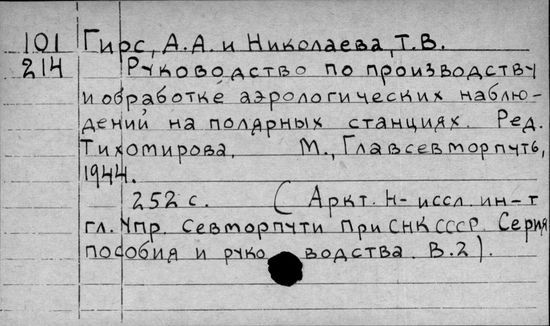 101 Гирс, А.А. и Николаева, Т.В.
214 Руководство по производству
и обработке аэрологических наблю-
дений на полярных станциях. Ред.
Тихомирова. М., Главсевморпуть,
1944.
252 с. (Аркт. н-иссл. ин-т
гл. Упр. Севморпути при СНК СССР. Серия
пособия и руко водства. В.2).